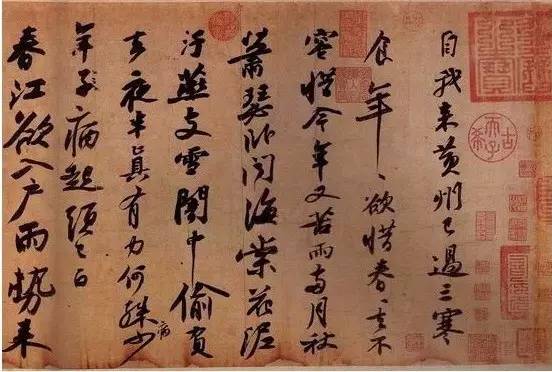 自我来黄州已過三寒
食年〻欲惜春〻去不
容惜今年又苦雨兩月秋
蕭瑟卧聞海棠花泥
汙燕支雪闇中偷負
去夜半真有力何殊少
病
年子病起須已白
春江欲入户雨勢来
古希天子